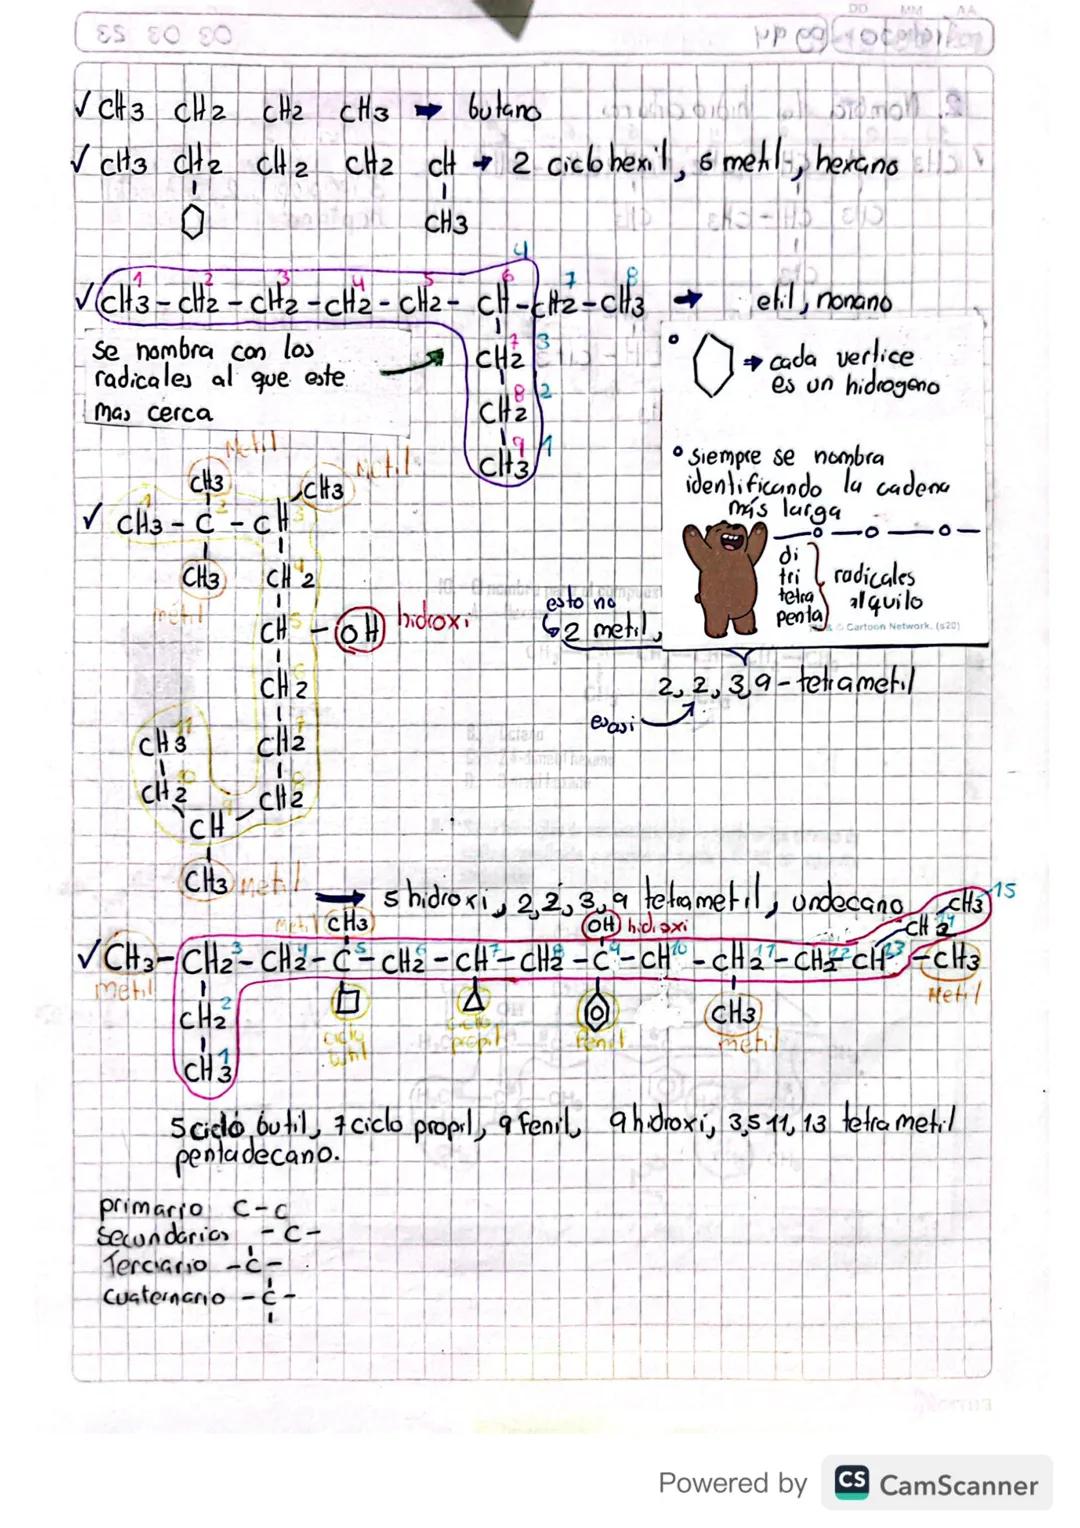 03 03 23
✓ CH3 CH2 CH2 CH3 → butano
✓ CH3 CH2 CH2 CH2 CH → 2 ciclohexil, 6 metil, hexano
CH3
4
1 2 3 4 5 6 7 8
✓ CH3 - CH2 - CH2 - CH2 - CH2 - CH - CH2 - CH3 → etil, nonano
CH2 7 3
CH2 8 2
CH3 9 1
Se nombra con los
radicales al que este
mas cerca
→ cada vertice
es un hidrogeno
Siempre se nombra
identificando la cadena
más larga
di
tri
tetra
penta
radicales
alquilo
Cartoon Network. (s20)
Metil
CH3
CH3 Metil
✓ CH3 - C - CH
1 2 3
CH3 CH2 4
metil
CH 5 - OH hidroxi
CH2 6
CH3 11 CH2 7
CH2 10 CH2 8
CH 9
CH3 metil
esto no
2 metil,
2, 2, 3, 9 - tetrametil
es asi
→ 5 hidroxi, 2,2,3,9 tetrametil, undecano
Metil CH3
OH hidroxi
CH3 15
CH2 14
✓ CH3 - CH2 3 - CH2 4 - C 5 - CH2 6 - CH 7 - CH2 8 - C 9 - CH 10 - CH2 11 - CH2 12 CH 13 - CH3
metil
Metil
CH2 2
CH3 1
ciclo
butil
ciclo
propil
fenil
CH3
metil
5 ciclo butil, 7 ciclo propil, 9 fenil, 9 hidroxi, 3,5 11, 13 tetra metil
pentadecano.
primario C - C
Secundarios - C -
Terciario - C -
cuaternario - C -
Powered by CS CamScanner